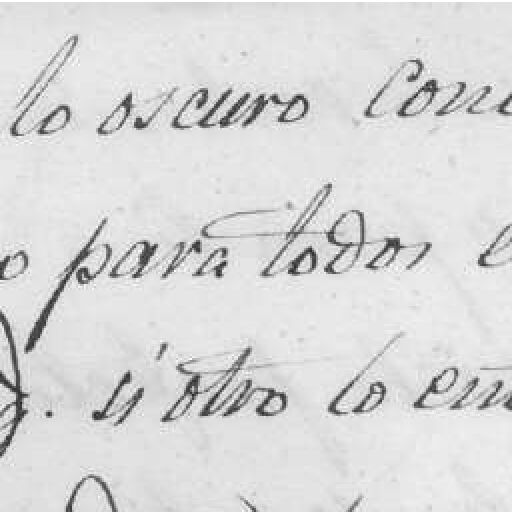 lo oscuro con
o para todos e
g. si otro lo em